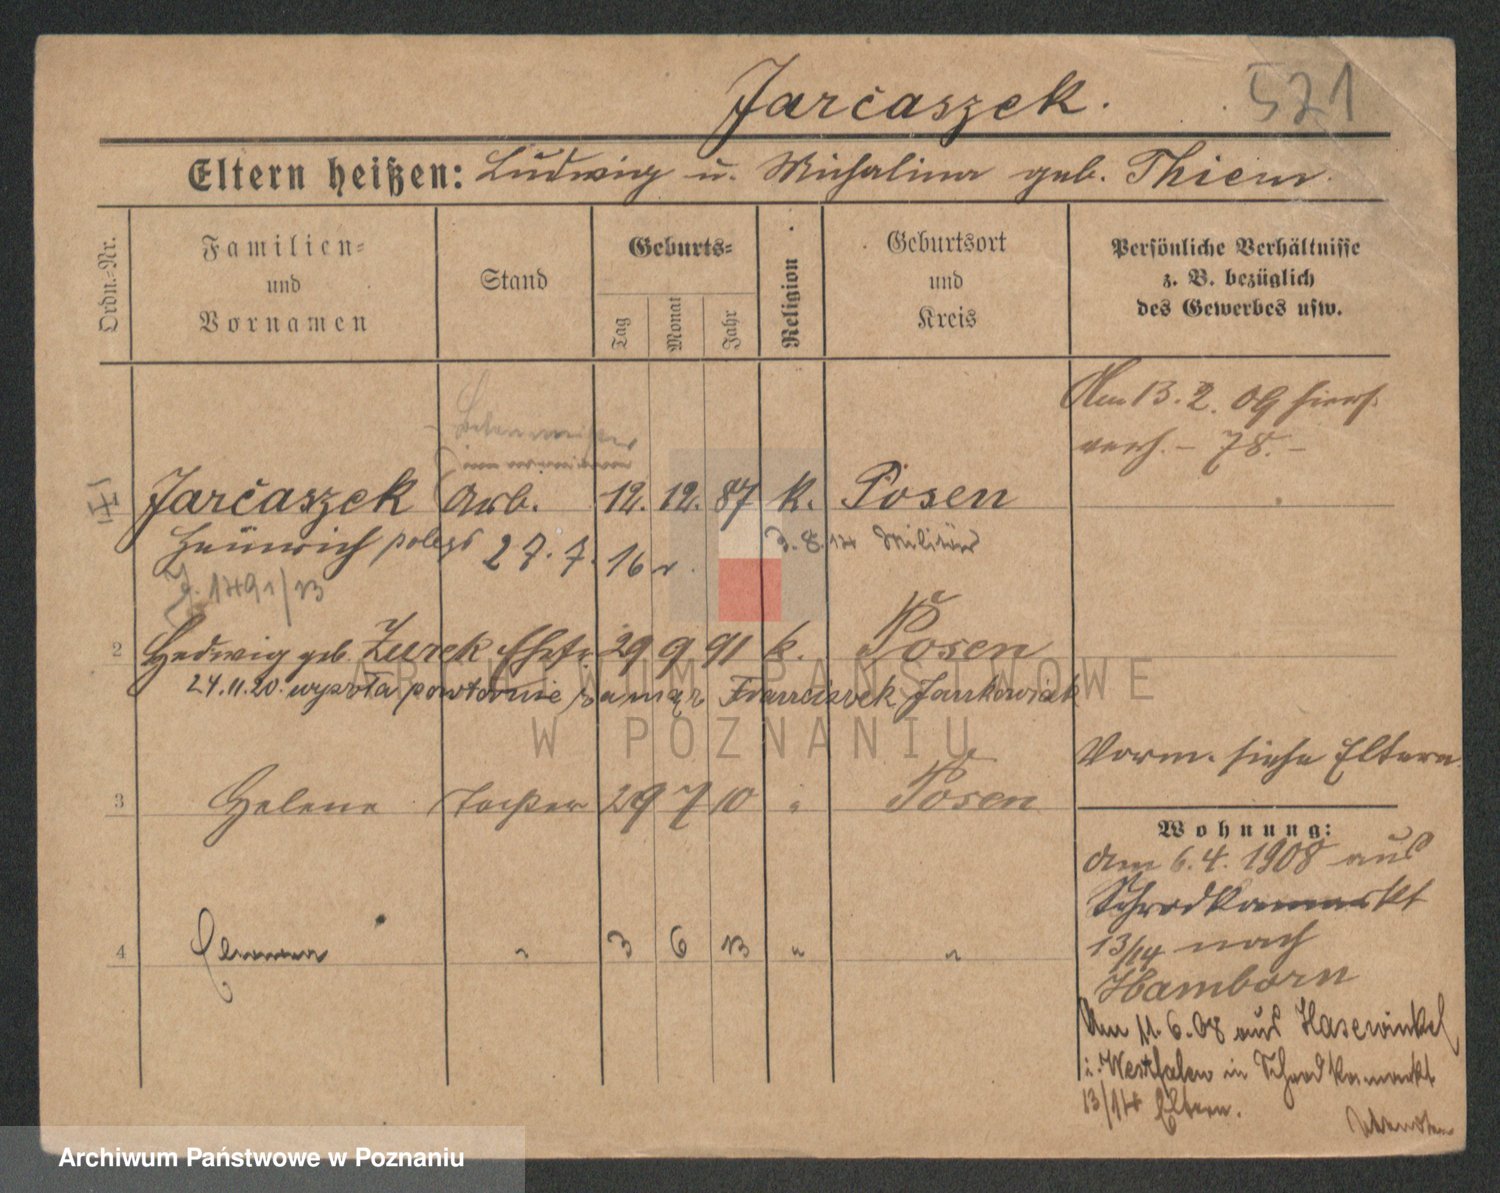 Jarčaszek.
521
Eltern heißen: Ludwig u. Michalina geb. Thiem.
Ordn.-Nr.
Familien-
und
Vornamen
Stand
Geburts-
Tag
Monat
Jahr
Religion
Geburtsort
und
Kreis
Persönliche Verhältnisse
z. B. bezüglich
des Gewerbes usw.
Am 13.2.09 hier
verh. – 78. –
Jarčaszek Arb. 12. 12. 87 k. Posen
Heinrich poległ 27.7.16 r. 3.8.14 Militär
J. 1491/13
2 Hedwig geb. Zurek Ehefr 29 9 91 k. Posen
24.11.20. wyszła powtórnie zamąż Franciszek Jankowiak
Vorm. siehe Eltern
3 Helene Tochter 29 7 10 " Posen
4 " 3 6 13 " "
Wohnung:
am 6.4.1908 aus
Schrodkamarkt
13/14 nach
Hamborn
Am 11.6.08 aus Hasewinkel
i. Westfalen in Schrodkamarkt
13/14 Eltern.
ARCHIWUM PAŃSTWOWE
W POZNANIU
Archiwum Państwowe w Poznaniu